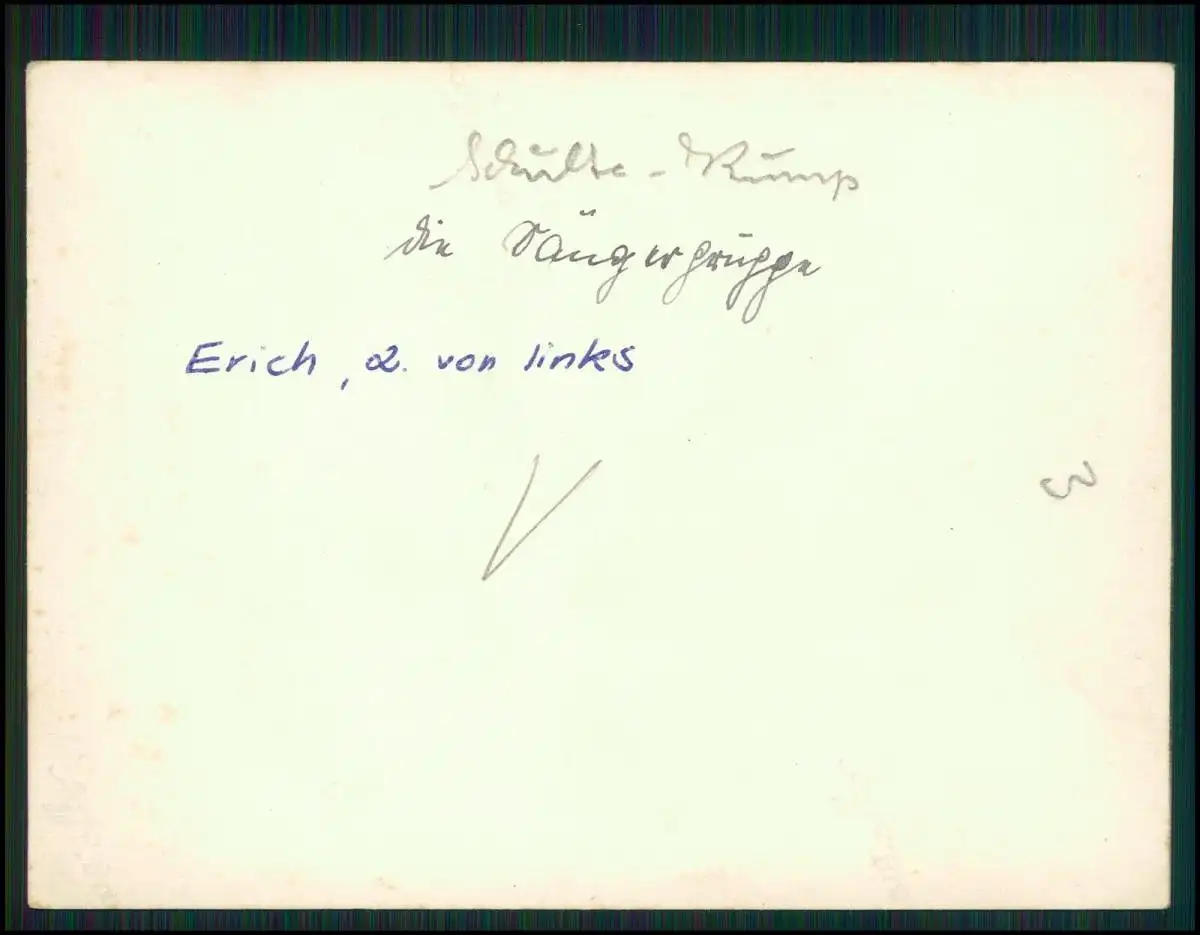 Schulte - Rump
die Sängergruppe
Erich, 2. von links
3